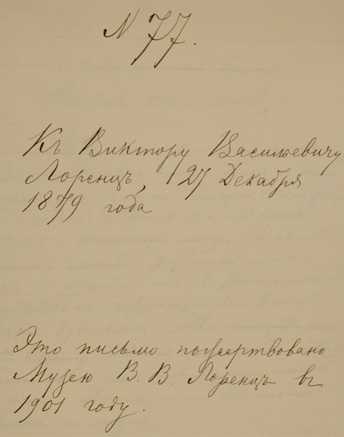 N 77.
Къ Виктору Васильевичу
Лоренцъ, 27 Декабря
1879 года
Это письмо пожертвовано
Музею В. В Лоренцъ въ
1901 году.